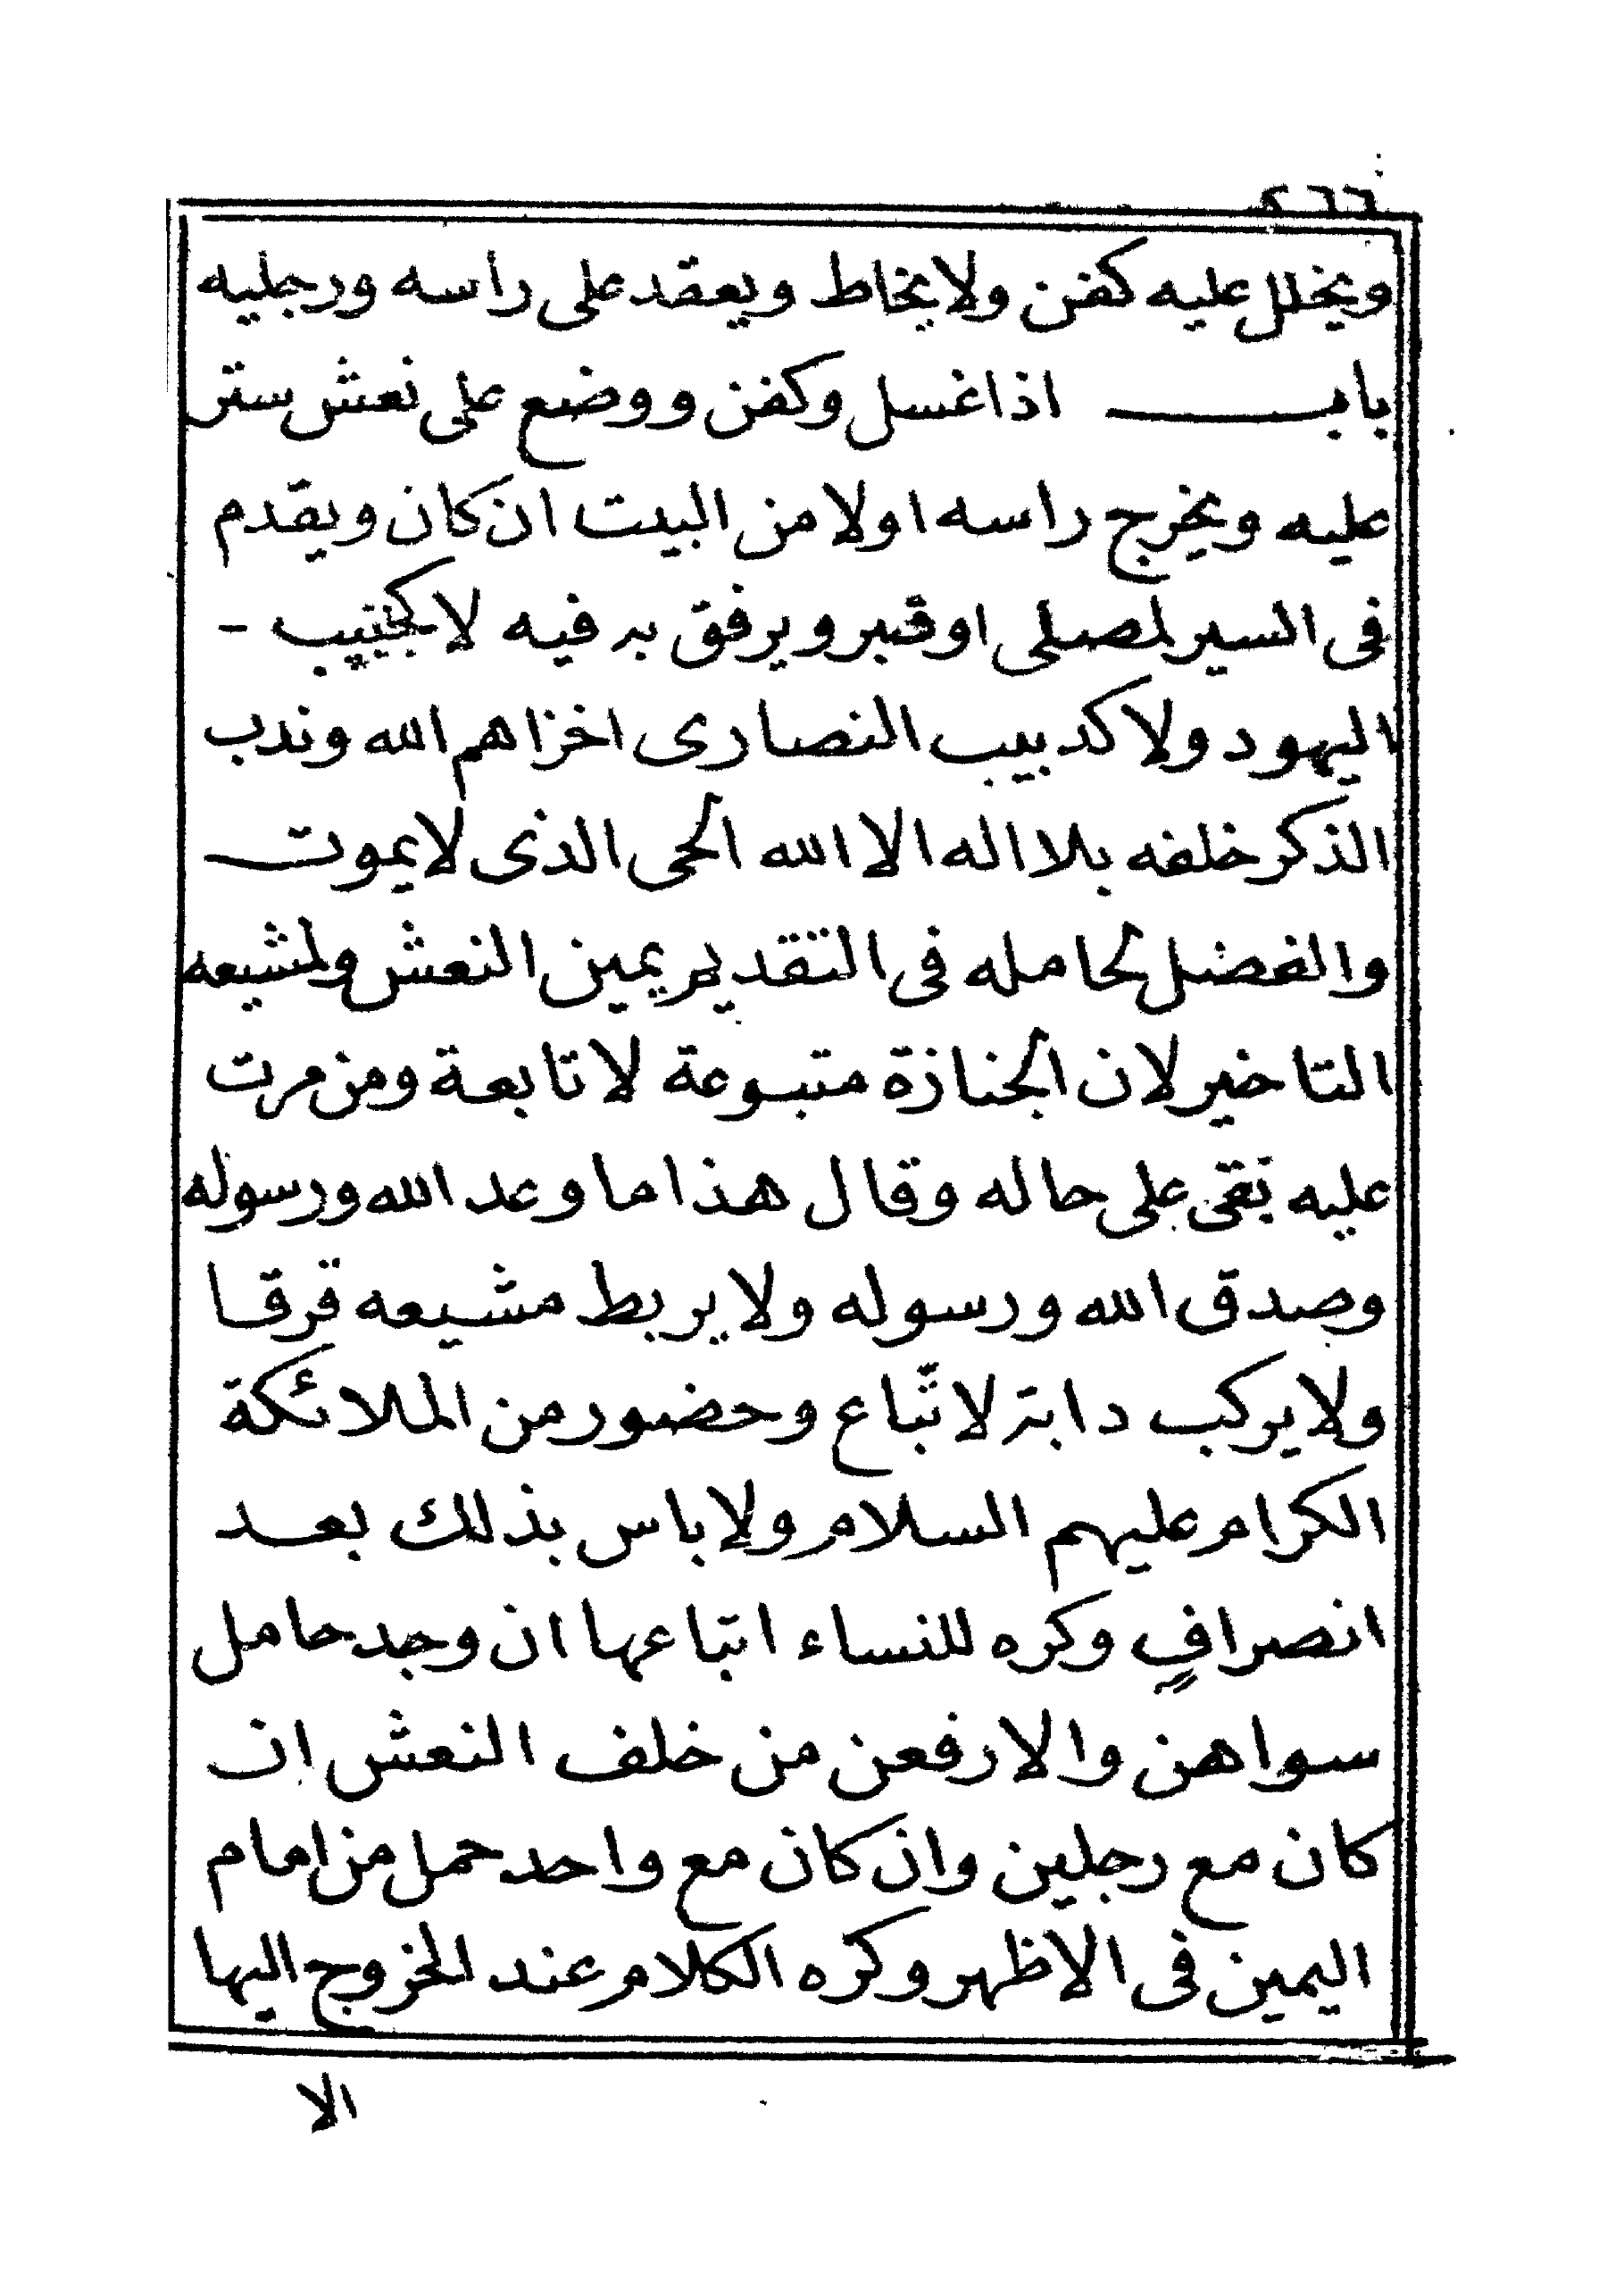 ويخلل عليه كفن ولا يخاط ويعقد على راسه ورجليه
باب اذا غسل وكفن ووضع على نعش ستر
عليه ويخرج راسه اولا من البيت ان كان ويقدم
فى السير لمصلى او قبر ويرفق به فيه لا كخبيب -
اليهود ولا كدبيب النصارى اخزاهم الله وندب
الذكر خلفه بلا اله الا الله الحى الذى لا يموت
والفضل لحامله فى التقديم يمين النعش ولمشيعه
التاخير لان الجنازة متبوعة لا تابعة ومن مرت
عليه بقى على حاله وقال هذا ما وعد الله ورسوله
وصدق الله ورسوله ولا يربط مشيعه قرقا
ولا يركب دابة لاتّباع وحضور من الملائكة
الكرام عليهم السلام ولا باس بذلك بعد
انصرافٍ وكره للنساء اتباعها ان وجد حامل
سواهن والا رفعن من خلف النعش ان
كان مع رجلين وان كان مع واحد حمل من امام
اليمين فى الاظهر وكره الكلام عند الخروج اليها
الا